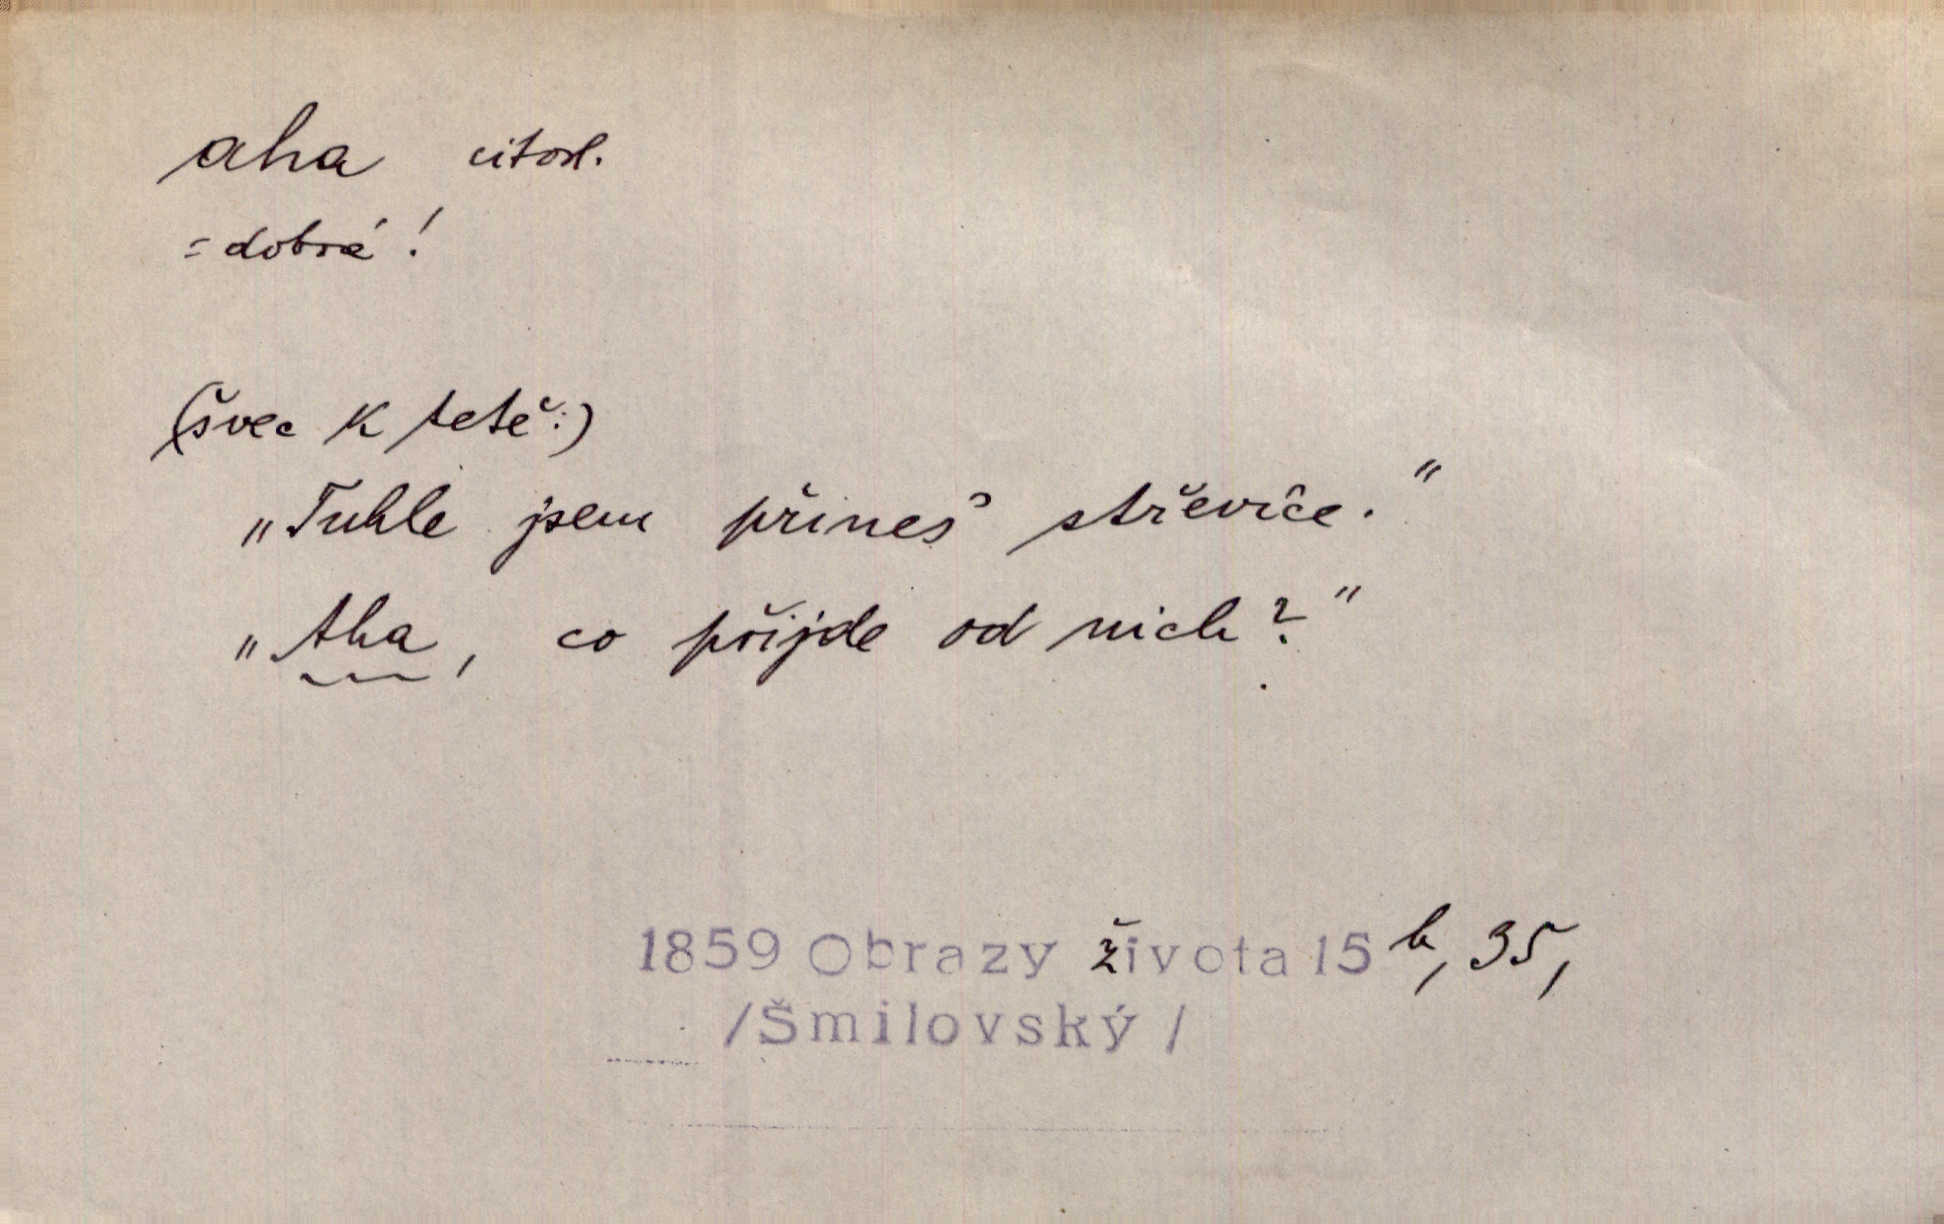 aha citosl.
= dobrá!
(švec k tetě:)
„Tuhle jsem přines' střevíce."
„Aha, co přijde od nich?"
1859 Obrazy života 15 b, 35,
/Šmilovský/